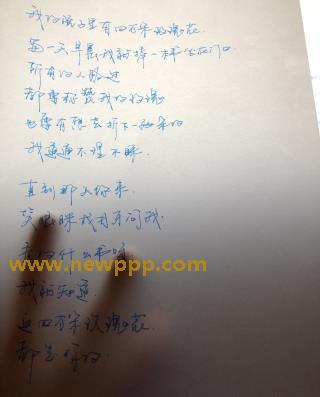 我的院子里有四万朵玫瑰花.
每一天早晨我都捧一本书坐在门口
所有的人路过
都要称赞我的玫瑰
也要有想去折下一两朵的
我通通不理不睬.
直到那天你来.
笑眯眯 问我.
什么书呀
www.newppp.com
我就知道.
这四万朵玫瑰花.
都是你的.